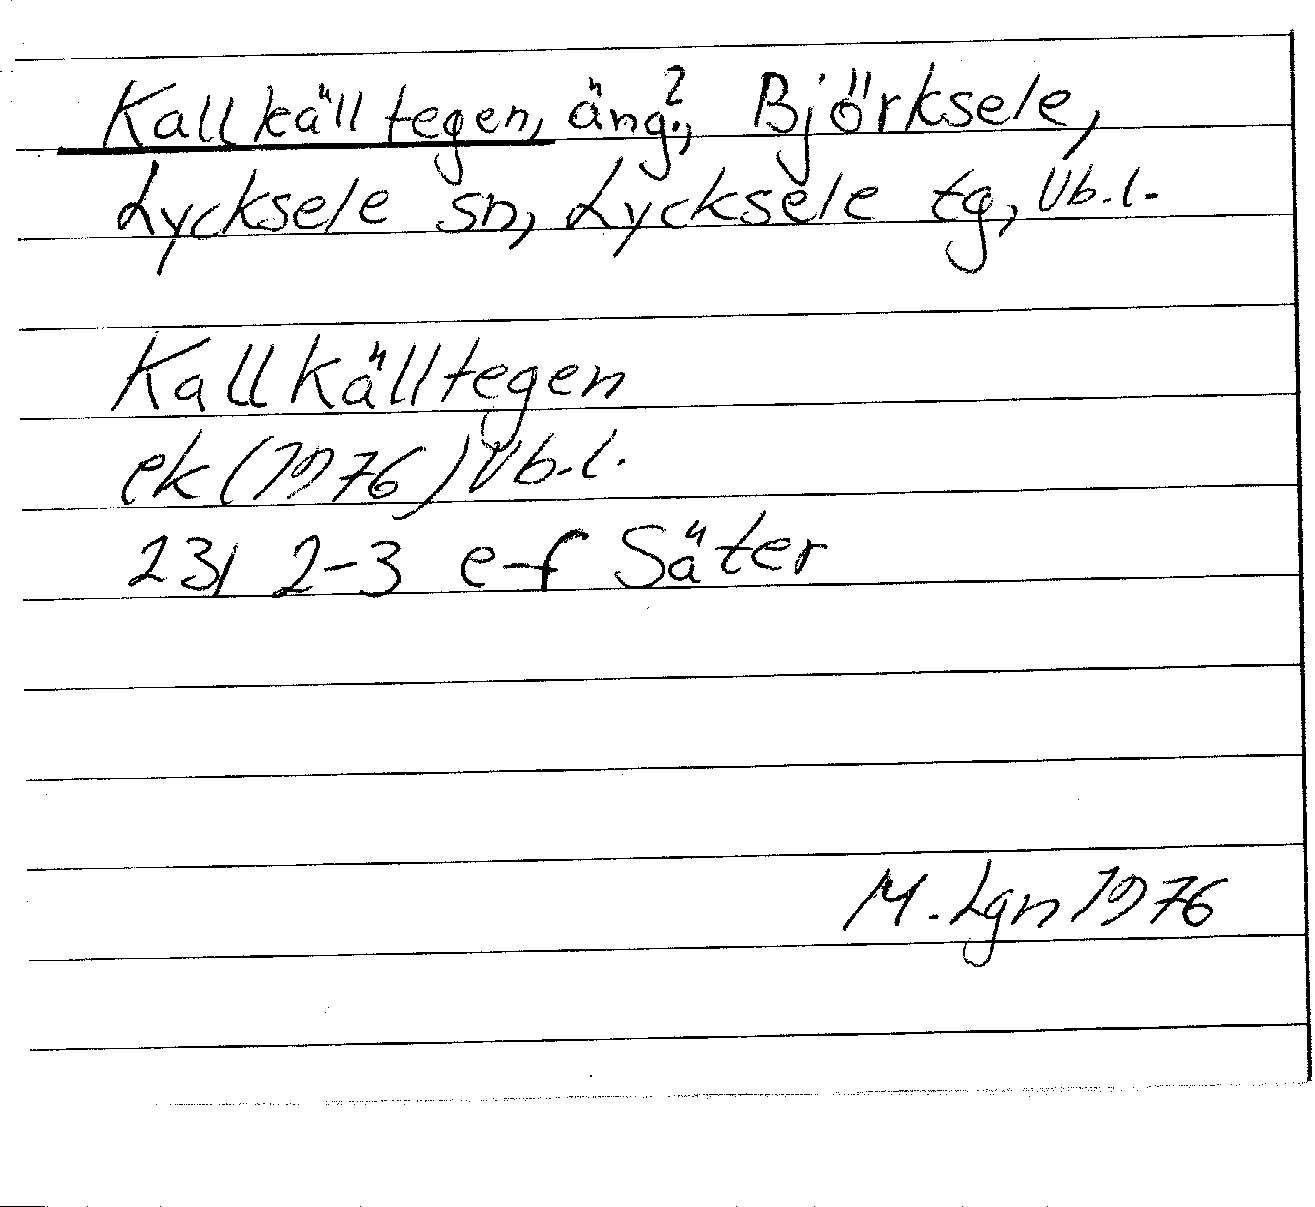 Kallkälltegen, äng?, Björksele,
Lycksele sn, Lycksele tg, Vb.l.
Kallkälltegen
ek (1976) Vb.l.
23I 2-3 e-f Säter
M. Lgn 1976